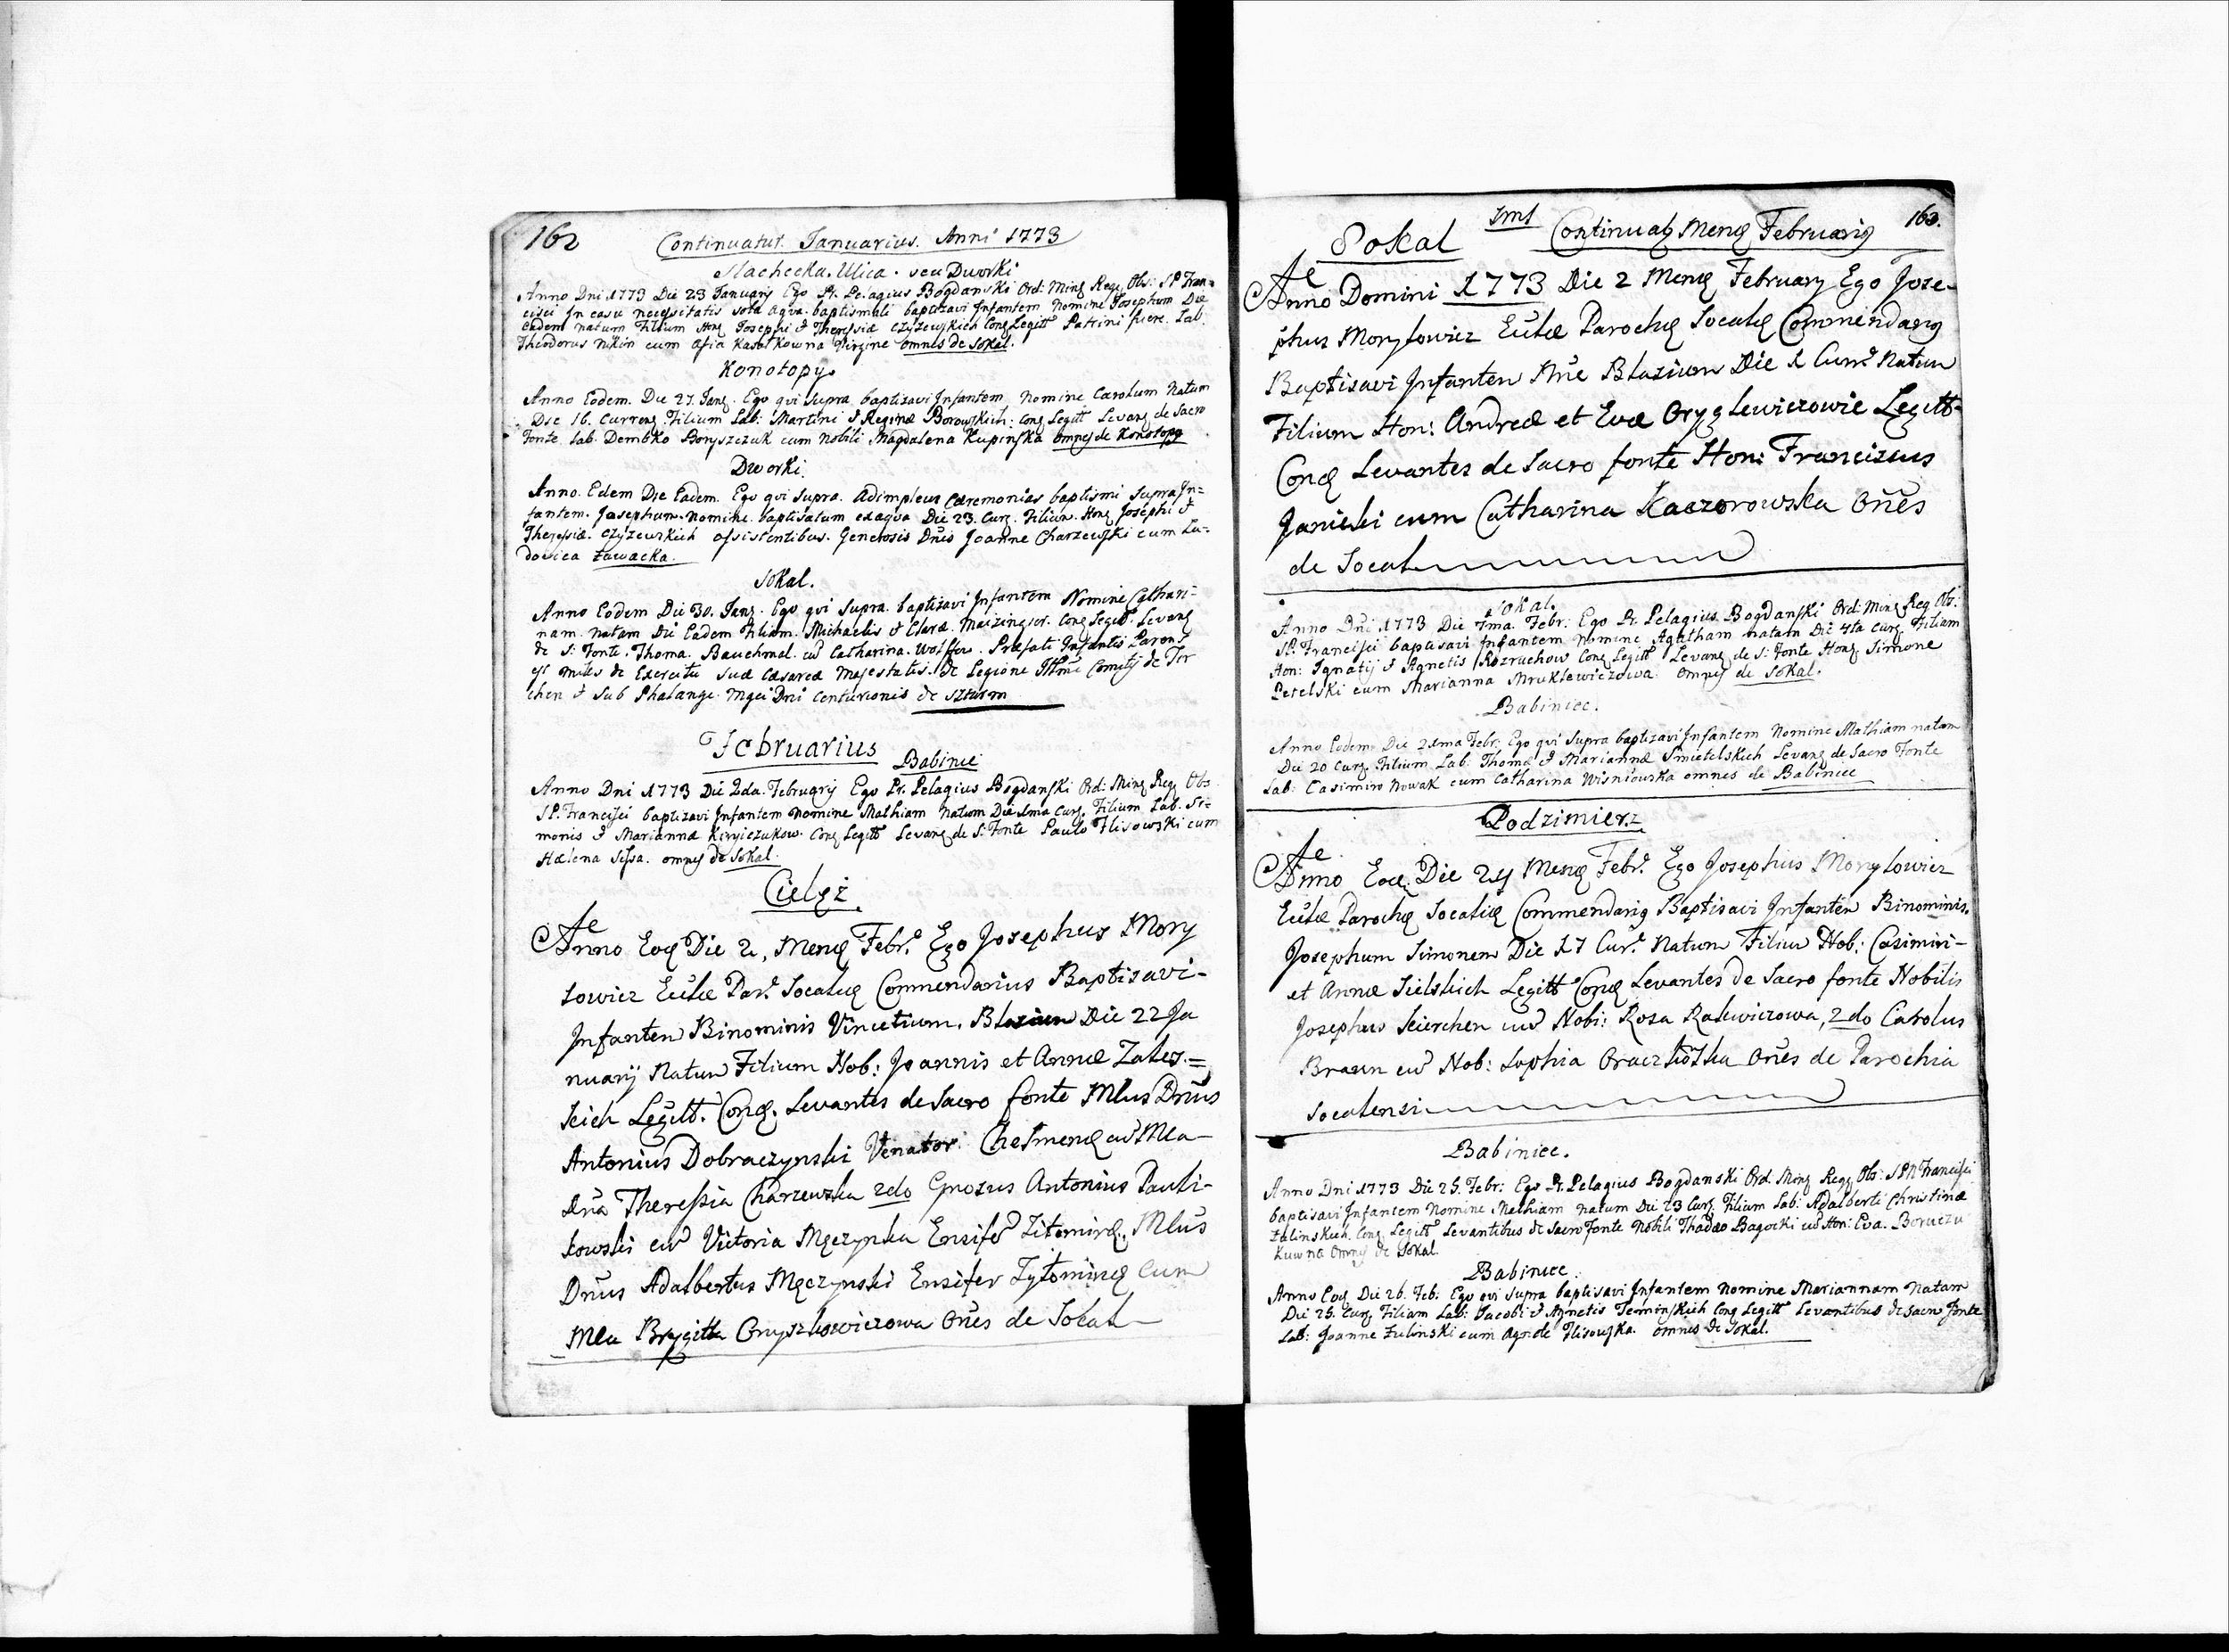 162
Continuatur. Januarius. Anni 1773
Slachecka. Ulica. seu Dworki
Anno Dni 1773 Die 23 Januarij Ego Pr. Pelagius Bogdanski Ord: Minq Regq Obs: S P Fran=
cisci In casu necessitatis sola aqva baptismali baptizavi Infantem Nomine Josephum Die
Eadem natum Filium Honq Josephi & Theressiæ Czyzewskich Conq Legitt Patrini fuere. Lab.
Theodorus Nikin cum Virgine omnes de Sokal.
Konotopy.
Anno Eodem. Die 27. Janq. Ego qvi supra baptizavi Infantem Nomine Carolum Natum
Die 16. Currenq Filium Lab: Martini & Reginæ Borowskich. Conq Legitt Levanq de Sacro
Fonte. Lab. Dembko Boryszczuk cum Nobili Magdalena Kupinska omnes de Konotopy
Dworki
Anno. Edem Die Eadem. Ego qvi supra. adimplevi Cæremonias baptismi supra In=
fantem. Josephum. nomine. baptisatum ex aqva Die 23. Curq. Filium. Honq Josephi &
Theressiæ. Czyzewskich assistentibus. Generosis Dnis Joanne Charzewski cum Lu=
dovica Zawacka.
Sokal.
Anno Eodem Die 30. Janq. Ego qvi supra. baptizavi Infantem Nomine Cathari=
nam. natam Die Eadem Filiam. Michaelis & Claræ. Conq Legitt. Levanq
de S: Fonte. Thoma. Bauchmal. cū Catharina. Præfati Infantis Parens
est miles de Exercitu suæ Cæsareæ Majestatis. de Legione Illmi Comitis de Tir
chen & sub Phalange. Mgci Dni Centurionis de Szturm
Februarius Babinie
Anno Dni 1773 Die 2da. Februarij Ego Pr. Pelagius Bogdanski Ord: Minq Regq Obs
S P. Francisci baptizavi Infantem nomine Mathiam natum Die 1ma Curq. Filium Lab. Si=
monis & Mariannæ Conq Legitt Levanq de S: Fonte Paulo Flisowski cum
Hælena omnes de Sokal.
Cieląż.
Ae
Anno Eoq Die 2, Menq Febr. Ego Josephus Mory
lowicz Ecclæ Par. Socaliq Commendarius Baptisavi-
Infantem Binominis Vincetium. Blasium Die 22 Ja
nuarij Natum Filium Nob: Joannis et Annæ Zales.=
kich Legitt. Conq. Levantes de Sacro fonte Mlus Drūs
Antonius Dobraczynski Venator Chelmenq cū Mla-
Dnā Theressia Charzewska 2do Gnosus Antonius Pauli-
kowski cū Victoria Męczynska Ensifer Zitomirq, Mlus
Dnūs Adalbertus Męczynski Ensifer Zytomirq Cum
Mla Brygitta Gryszkowiczowa Onēs de Socal
Sokal 1ms Continuatq Menq Februariq 163.
Ae
Anno Domini 1773 Die 2 Menq February Ego Jose-
phus Morylowicz Ecclæ Parochq Socaliq Commendariq
Baptisavi Infantem Nne Blasium Die 1 Curr. Natum
Filium Hon: Andreæ et Evæ Oryglewiczowie Legitt-
Conq Levantes de Sacro fonte Hon: Franciscus
Janicki cum Catharina Kaczorowska Onēs
de Socal
Sokal.
Anno Dni 1773 Die 7ma. Febr. Ego Pr. Pelagius Bogdanski Ord: Minq Reg Obs:
S P. Francisci baptisavi Infantem nomine Agatham natam Die 4ta Curq Filiam
Hon: Ignatij & Agnetis Rozruchow Conq Legitt Levanq de S: Fonte Honq Simone
Petelski cum Marianna Mruklewiczowa. omnes de Sokal.
Babiniec.
Anno Eodem Die 21ma Febr. Ego qvi supra baptizavi Infantem Nomine Mathiam natum
Die 20 Curq. Filium Lab. Thomæ & Mariannæ Smietelskich Levanq de Sacro Fonte
Lab: Casimiro Nowak cum Catharina Wisniowska omnes de Babiniec
Podzimierz
Ae
Anno Eoq. Die 24 Menq Febr. Ego Josephus Morylowicz
Ecclæ Parochq Socaliq Commendariq Baptisavi Infantem Binominis.
Josephum Simonem Die 17 Cur. Natum Filium Nob: Casimiri-
et Annæ Sielskich Legitt Conq Levantes de Sacro fonte Nobilis
Josephus Seierchen cū Nobi: Rosa Rakwiczowa, 2do Carolus
Braun cū Nob: Sophia Onēs de Parochia
Socalensi
Babiniec.
Anno Dni 1773 Die 25. Febr: Ego Pr. Pelagius Bogdanski Ord. Minq Regq Obs: S P N Francisci
baptisavi Infantem Nomine Mathiam natum Die 23 Curq Filium Lab: Adalberti Christinæ
Zulinskich. Conq Legitt Levantibus de Sacro Fonte Nobili Thadæo Bagocki cū Hon: Eva. Boruczu
kuwna Omnes de Sokal
Babiniec.
Anno Eoq Die 26. Feb: Ego qvi supra baptisavi Infantem Nomine Mariannam Natam
Die 25. Curq Filiam Lab: Jacobi & Agnetis Teminskich Conq Legitt Levantibus de Sacro Fonte
Lab: Joanne Zulinski cum Flisowska. omnes de Sokal.